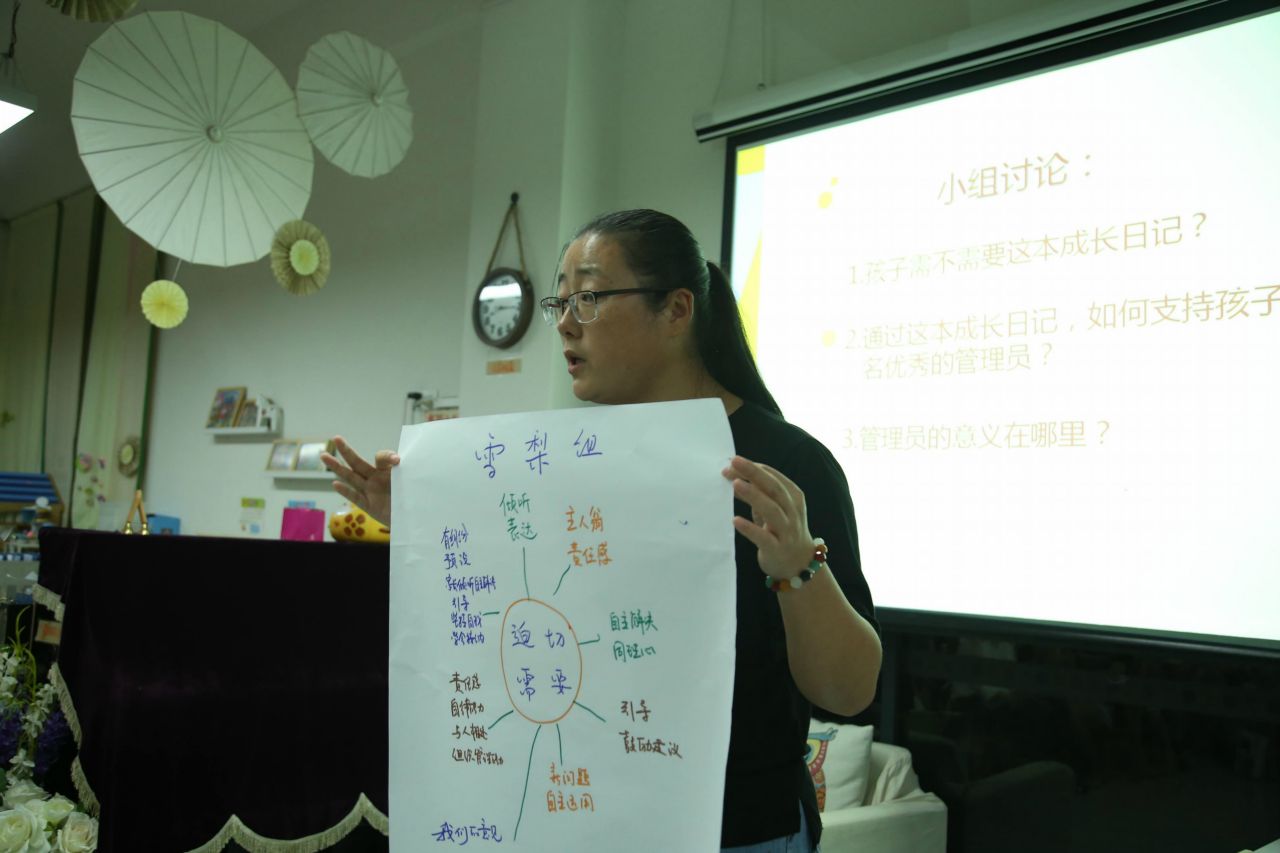 小组讨论：
1.孩子需不需要这本成长日记？
2.通过这本成长日记，如何支持孩子
名优秀的管理员？
3.管理员的意义在哪里？
雪梨组
倾听
表达
主人翁
责任感
预设
引导
迫切
需要
自主解决
同理心
责任感
自律能力
与人相处
组织管理能力
引导
鼓励建议
新问题
自主运用
我们的意见